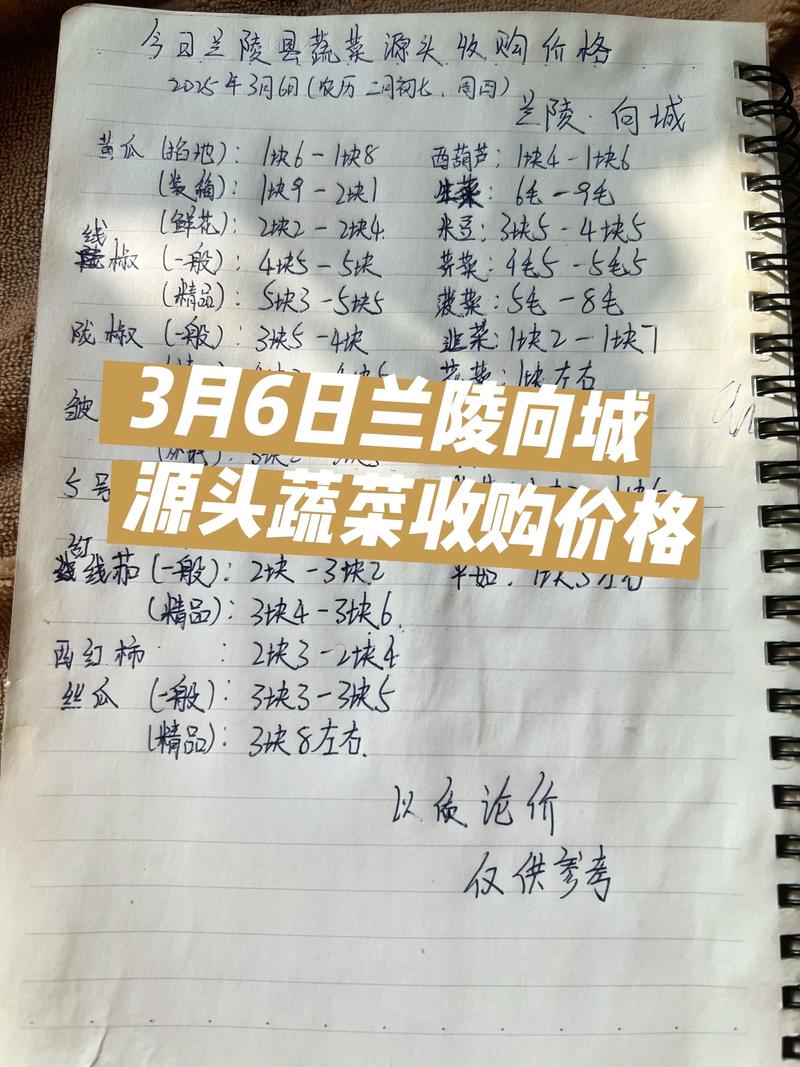 今日兰陵县蔬菜源头收购价格
2025年3月6日(农历 二月初七、周四)
兰陵·向城
黄瓜(掐地):1块6-1块8
(装箱):1块9-2块1
(鲜花):2块2-2块4
线椒(一般):4块5-5块
(精品):5块3-5块5
陇椒(一般):3块5-4块
皱
5号
红线茄(一般):2块-3块2
(精品):3块4-3块6
西红柿:2块3-2块4
丝瓜(一般):3块3-3块5
(精品):3块8左右.
西葫芦:1块4-1块6
生菜:6毛-9毛
米豆:3块5-4块5
芹菜:4毛5-5毛5
菠菜:5毛-8毛
韭菜:1块2-1块7
1块左右
3月6日兰陵向城
源头蔬菜收购价格
以质论价
仅供参考